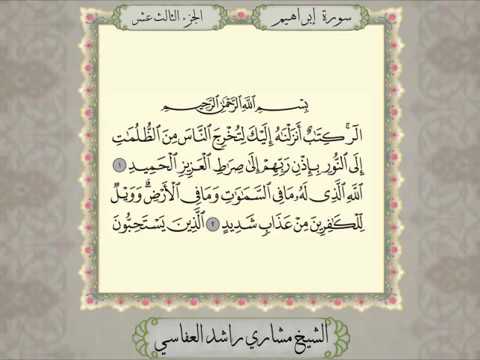 سورة إبراهيم
الجزء الثالث عشر
بِسْمِ اللَّهِ الرَّحْمَٰنِ الرَّحِيمِ
الٓر ۚ كِتَٰبٌ أَنزَلْنَٰهُ إِلَيْكَ لِتُخْرِجَ النَّاسَ مِنَ الظُّلُمَٰتِ
إِلَى النُّورِ بِإِذْنِ رَبِّهِمْ إِلَىٰ صِرَٰطِ الْعَزِيزِ الْحَمِيدِ ١
اللَّهِ الَّذِي لَهُۥ مَا فِي السَّمَٰوَٰتِ وَمَا فِي الْأَرْضِ ۗ وَوَيْلٌ
لِّلْكَٰفِرِينَ مِنْ عَذَابٍ شَدِيدٍ ٢ الَّذِينَ يَسْتَحِبُّونَ
الشيخ مشاري راشد العفاسي